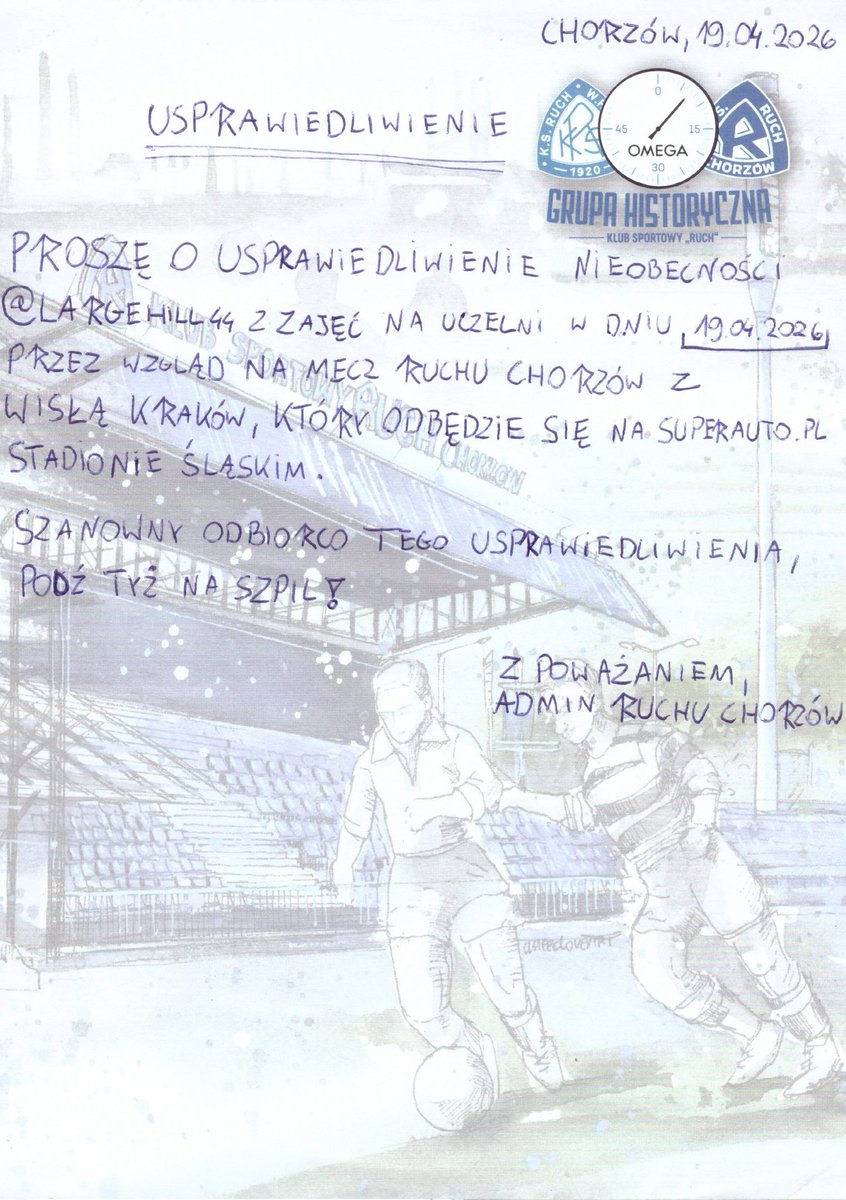 CHORZÓW, 19.04.2026
USPRAWIEDLIWIENIE
K.S. RUCH W.
1920
0
15
30
45
OMEGA
RUCH
CHORZÓW
GRUPA HISTORYCZNA
KLUB SPORTOWY „RUCH"
PROSZĘ O USPRAWIEDLIWIENIE NIEOBECNOŚCI
@LARGEHILL44 Z ZAJĘĆ NA UCZELNI W DNIU 19.04.2026
PRZEZ WZGLĄD NA MECZ RUCHU CHORZÓW Z
WISŁĄ KRAKÓW, KTÓRY ODBĘDZIE SIĘ NA SUPERAUTO.PL
STADIONIE ŚLĄSKIM.
KLUB SPORTOWY RUCH CHORZÓW
SZANOWNY ODBIORCO TEGO USPRAWIEDLIWIENIA,
PODŹ TYŻ NA SZPIL!
Z POWAŻANIEM,
ADMIN RUCHU CHORZÓW